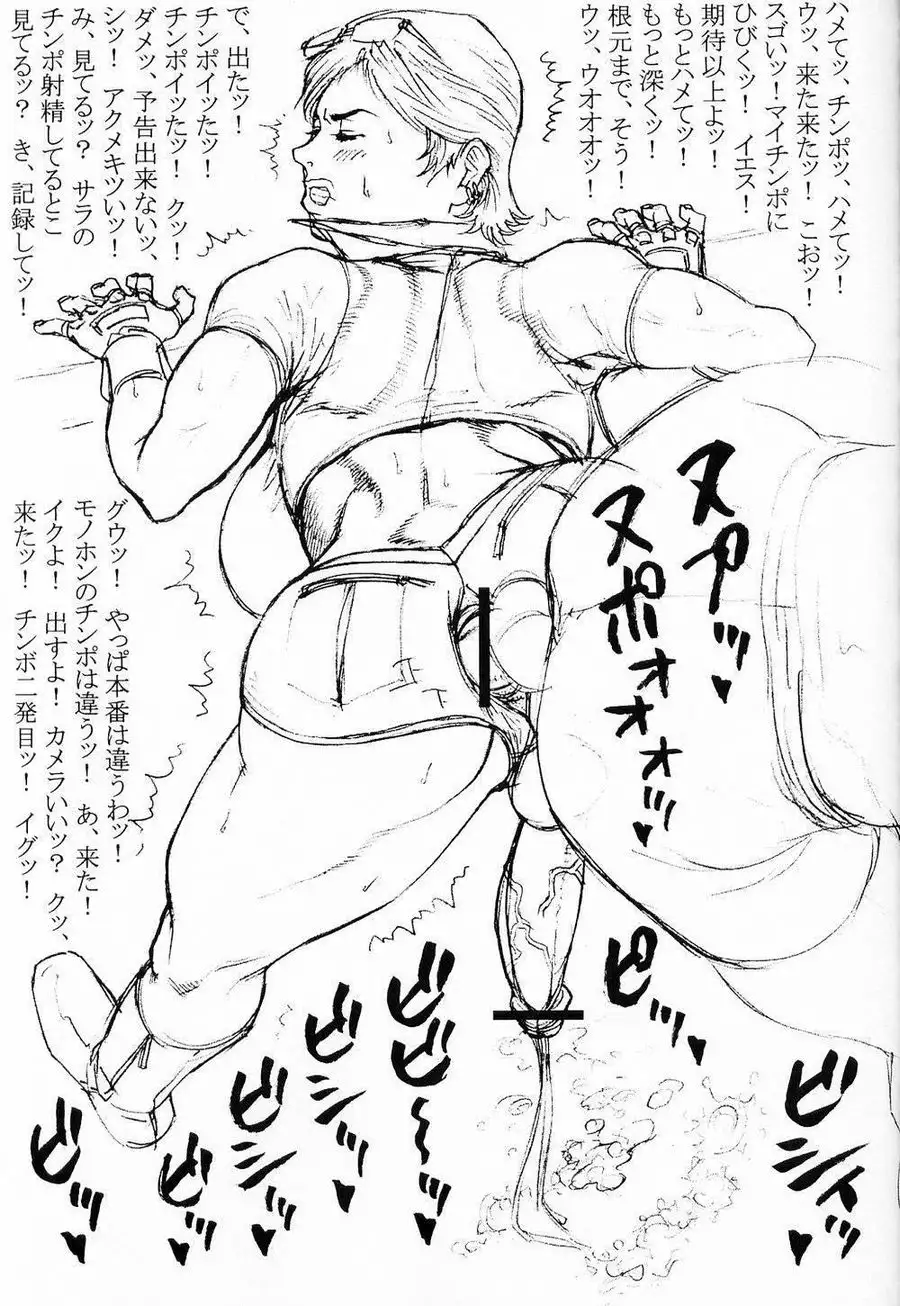 ハメてッ、チンポッ、ハメてッ！
ウッ、来た来たッ！ こおッ！
スゴいッ！マイチンポに
ひびくッ！ イエス！
期待以上よッ！
もっとハメてッ！
もっと深くッ！
根元まで、そう！
ウッ、ウオオオッ！
で、出たッ！
チンポイッたッ！
チンポイッたッ！ クッ！
ダメッ、予告出来ないッ、
シッ！ アクメキツいッ！
み、見てるッ？ サラの
チンポ射精してるとこ
見てるッ？ き、記録してッ！
ヌアッ♥
ヌポォォォッ♥
グウッ！ やっぱ本番は違うわッ！
モノホンのチンポは違うッ！ あ、来た！
イクよ！ 出すよ！ カメラいいッ？ クッ、
来たッ！ チンボ二発目ッ！ イグッ！
ピッ♥
ビシィッ♥
ビビ〜ッ♥
ビシッ♥
ビシッ♥
ビッ♥
ビッ♥